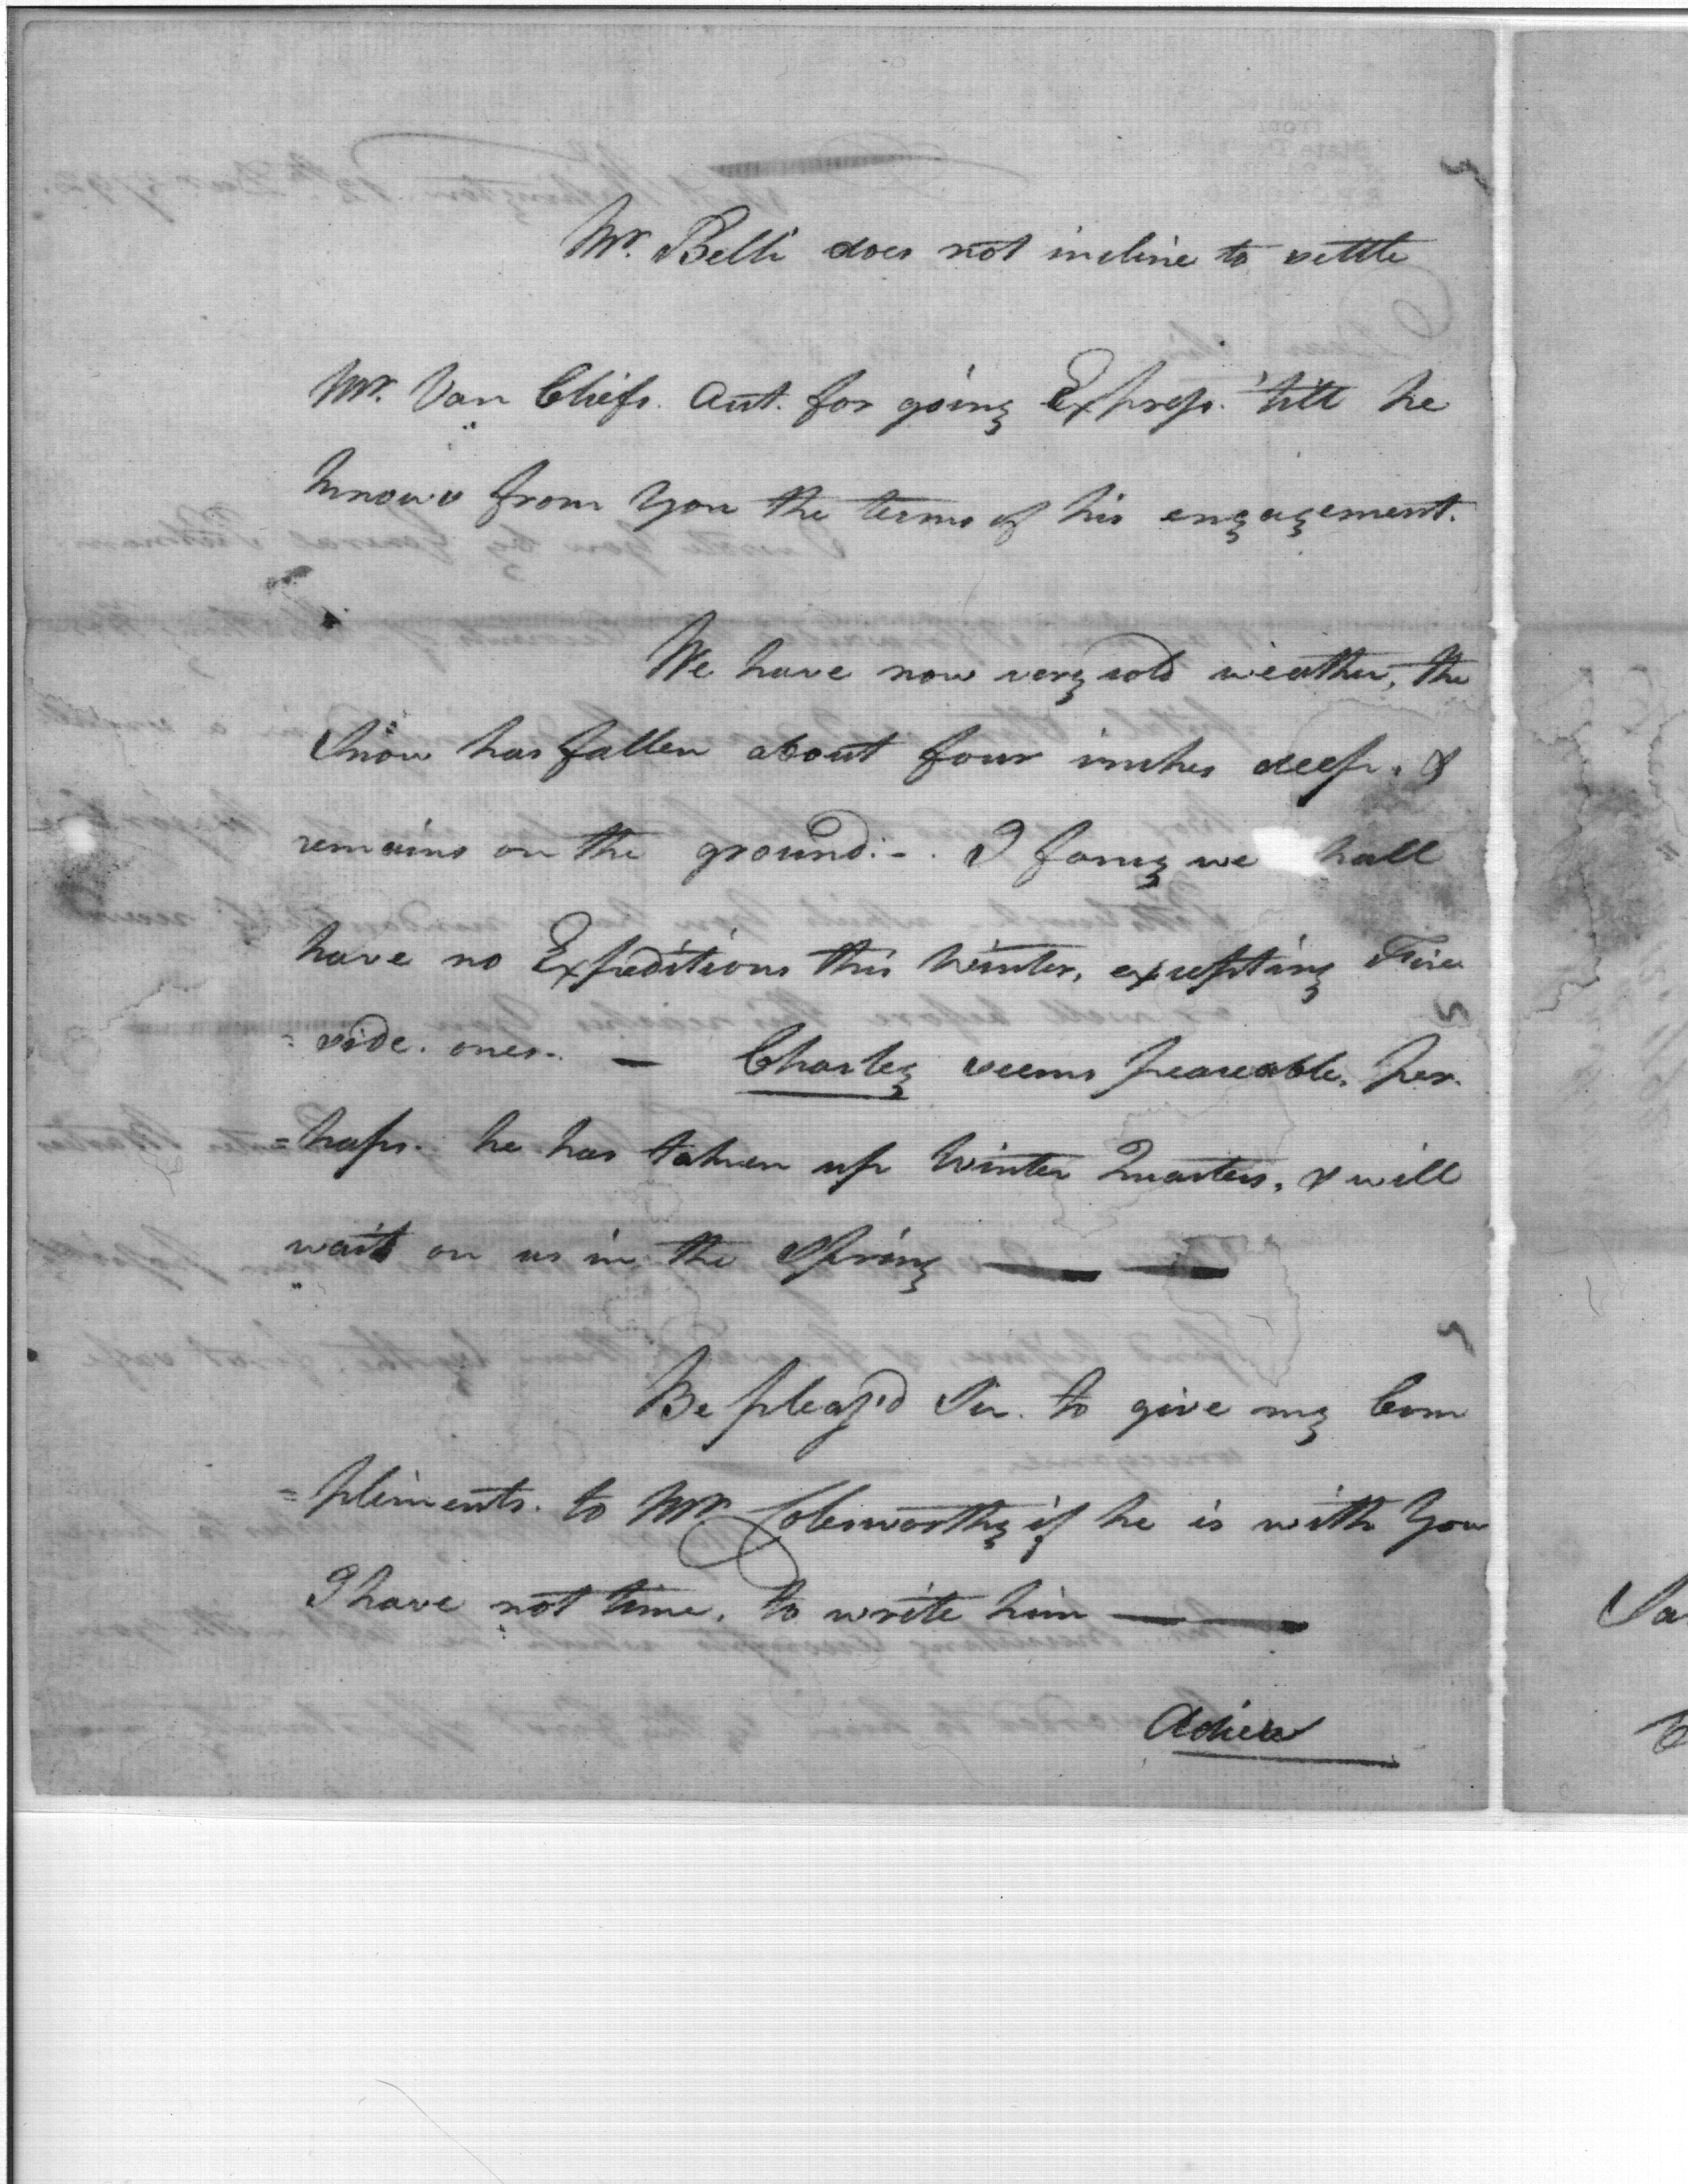 Mr. Belli does not incline to settle
Mr. Van Cliefs. Acct. for going Express. 'till he
knows from You the terms of his engagement.
We have now very cold weather, the
Snow has fallen about four inches deep. &
remains on the ground:-. I fancy we hall
have no Expeditions this Winter, excepting Fire
= side. ones. — Charley seems peaceable, per.
=haps. he has taken up Winter Quarters, & will
wait on us in the Spring — —
Be pleas'd Sir. to give my Com
=pliments. to Mr. Colesworthy if he is with You
I have not time, to write him — —
Adieu